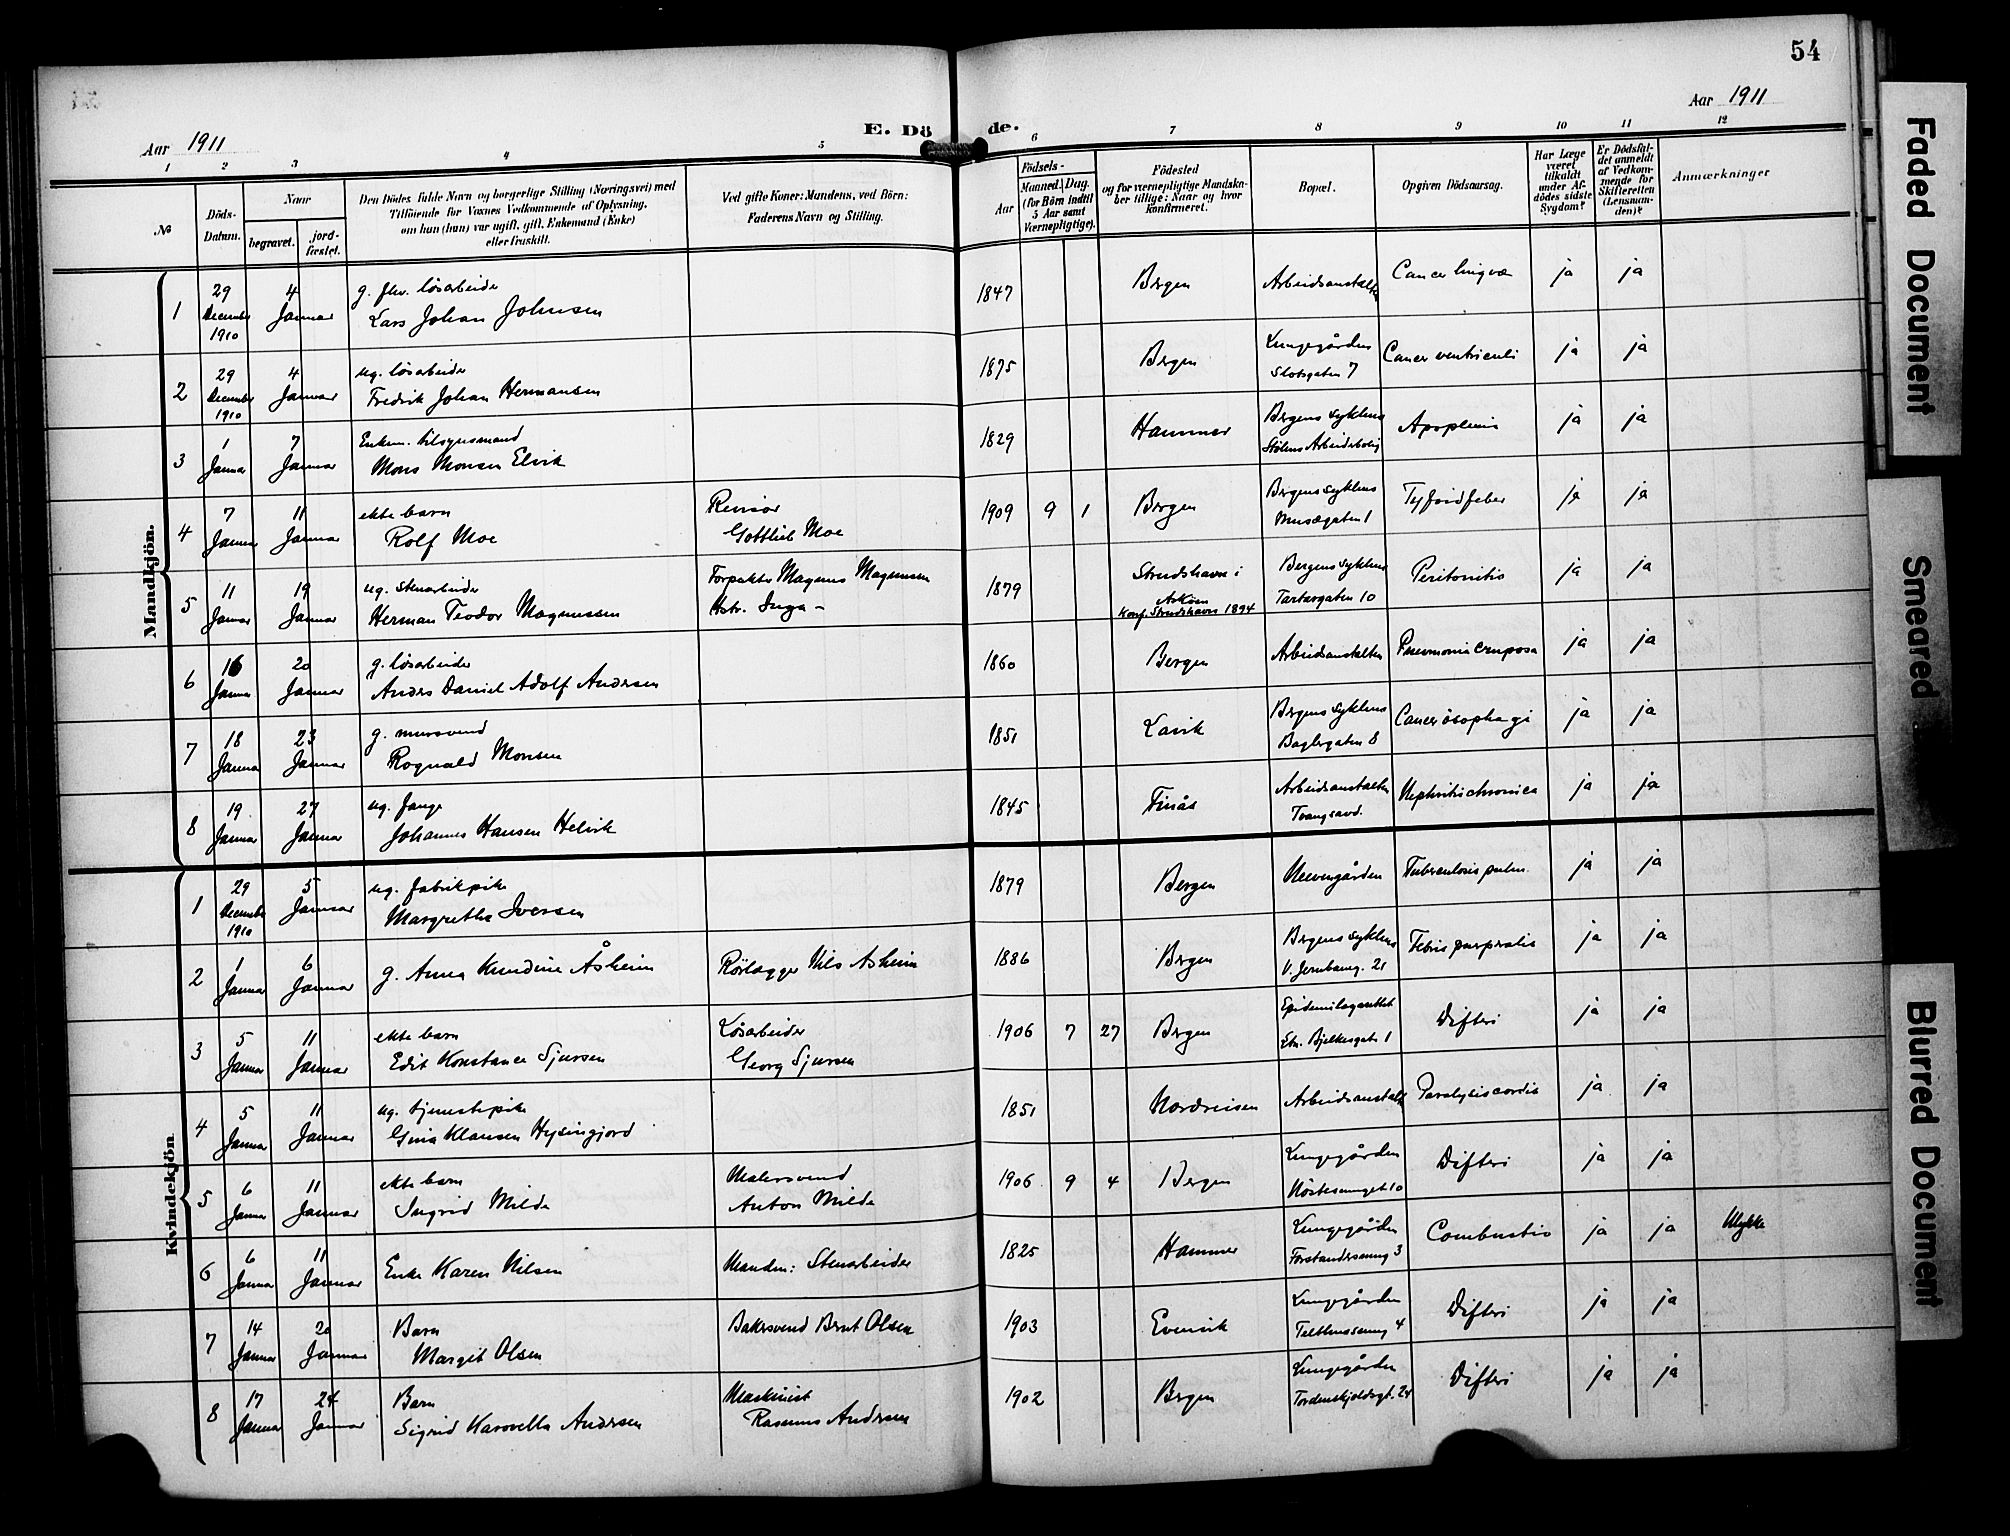 54
Aar 1911
E. Döde.
Aar 1911
1 2 3 4 5 6 7 8 9 10 11 12
No
Döds-Datum.
Naar
begravet.
jord-fæstet.
Den Dödes fulde Navn og borgerlige Stilling (Næringsvei) med
Tilföiende for Voxnes Vedkommende af Oplysning,
om han (hun) var ugift, gift, Enkemand (Enke)
eller fraskilt.
Ved gifte Koner: Mandens, ved Börn:
Faderens Navn og Stilling.
Födsels-
Aar
Maaned. Dag.
(for Börn indtil
5 Aar samt
Værnepligtige).
Födested
og for værnepligtige Mandska-
ber tillige: Naar og hvor
konfirmeret.
Bopæl.
Opgiven Dödsaarsag.
Har Læge
været
tilkaldt
under Af-
dödes sidste
Sygdom?
Er Dödsfal-
det anmeldt
af Vedkom-
mende for
Skifteretten
(Lensman-
den)?
Anmærkninger
Mandkjön.
1 29 December 1910 4 Januar g. fhv. løsarbeider Lars Johan Johnsen 1847 Bergen Arbeidsanstalten Cancer lingvæ ja ja
2 29 December 1910 4 Januar ug. løsarbeider Fredrik Johan Hermansen 1875 Bergen Lungegården Slotsgaten 7 Cancer ventriculi ja ja
3 1 Januar 7 Januar Enkem. tilsynsmand Mons Monsen Elvik 1829 Hammer Bergens sykehus Stølens Arbeiderbolig Apoplexia ja ja
4 7 Januar 11 Januar ekte barn Rolf Moe Revisor Gottlieb Moe 1909 9 1 Bergen Bergens sykehus Musegaten 1 Tyfoidfeber ja ja
5 11 Januar 19 Januar ug. stenarbeider Herman Teodor Magnussen Forpakter Magnus Magnussen Hstr. Inga - 1879 Strudshavn i Askøen Konf. Strudshavn 1894 Bergens sykehus Tartargaten 10 Peritonitis ja ja
6 16 Januar 20 Januar g. løsarbeider Anders Daniel Adolf Andersen 1860 Bergen Arbeidsanstalten Pneumonia cruposa ja ja
7 18 Januar 23 Januar g. mursvend Rognald Monsen 1851 Lavik Bergens sykehus Baglergaten 8 Cancer øsophagi ja ja
8 19 Januar 27 Januar ug. fange Johannes Hansen Helvik 1845 Finås Arbeidsanstalten Tvangsavd. Nephritis chronica ja ja
Kvindekjön
1 29 December 1910 5 Januar ug. fabrikpike Margrethe Iversen 1879 Bergen Neevengården Tuberculosis pulm. ja ja
2 1 Januar 6 Januar g. Anna Knudine Åsheim Rørlægger Nils Asheim 1886 Bergen Bergens sykehus V. Jernbaneg. 21 Febris puerperalis ja ja
3 5 Januar 11 Januar ekte barn Edit Konstance Sjursen Løsarbeider Georg Sjursen 1906 7 27 Bergen Epidemilazarettet Etn. Bjelkesgate 1 Difteri ja ja
4 5 Januar 11 Januar ug. tjenestepike Gina Klausen Hysingjord 1851 Nordreisen Arbeidsanstalt Paralysis cordis ja ja
5 6 Januar 11 Januar ekte barn Ingrid Milde Malersvend Anton Milde 1906 9 4 Bergen Lungegården Nøstesmuget 10 Difteri ja ja
6 6 Januar 11 Januar Enke Karen Nilsen Manden: Stenarbeider 1825 Hammer Lungegården Forstandersmug 3 Combustio ja ja Ulykke
7 14 Januar 20 Januar Barn Margit Olsen Bakersvend Bernt Olsen 1903 Evenvik Lungegården Telthussmug 4 Difteri ja ja
8 17 Januar 24 Januar Barn Sigrid Andersen Maskinist Rasmus Andersen 1902 Bergen Lungegården Tordenskjoldsgt. 24 Difteri ja ja
Faded Document
Smeared
Blurred Document